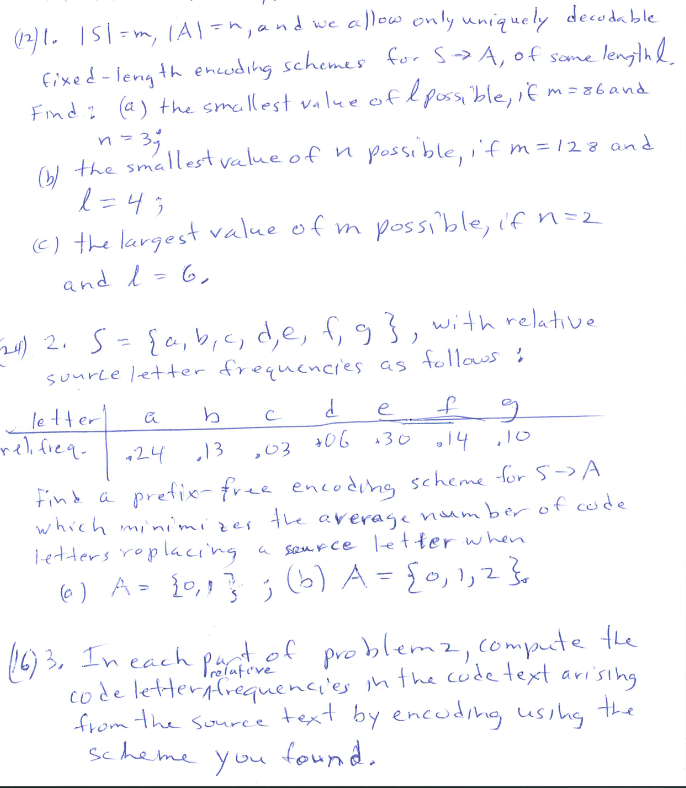 (12) 1. |S| = m, |A| = n, and we allow only uniquely decodable
fixed-length encoding schemes for S → A, of some length l.
Find: (a) the smallest value of l possible, if m = 86 and
n = 3;
(b) the smallest value of n possible, if m = 128 and
l = 4;
(c) the largest value of m possible, if n = 2
and l = 6.
24) 2. S = {a, b, c, d, e, f, g}, with relative
source letter frequencies as follows:
letter a b c d e f g
rel. freq. .24 .13 .03 .06 .30 .14 .10
Find a prefix-free encoding scheme for S → A
which minimizes the average number of code
letters replacing a source letter when
(a) A = {0,1}; (b) A = {0,1,2}.
(16) 3. In each part of problem 2, compute the
code letter relative frequencies in the code text arising
from the source text by encoding using the
scheme you found.